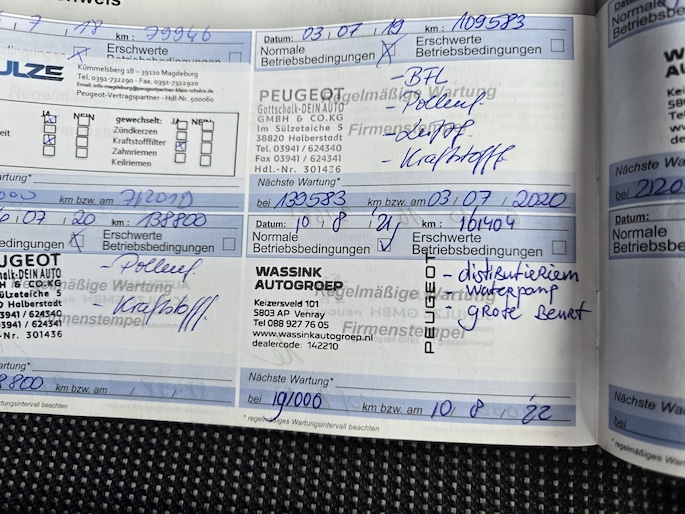 7 18 km: 79946
Erschwerte
Betriebsbedingungen
ULZE
Kümmelsberg 18 – 39110 Magdeburg
Tel. 0391-732290 - Fax. 0391-7322920
Peugeot-Vertragspartner - Hdl-Nr. 500060
JA NEIN gewechselt: JA NEIN
Zündkerzen
eit Kraftstofffilter
Zahnriemen
Keilriemen
Wartung*
km bzw. am 7/2019
Datum: 03 07 19 km: 109583
Normale
Betriebsbedingungen
Erschwerte
Betriebsbedingungen
PEUGEOT
Gottschalk-DEIN AUTO
GMBH & CO.KG
Im Sülzeteiche 5
38820 Halberstadt
Tel. 03941 / 624340
Fax 03941 / 624341
Hdl.-Nr. 301436
Regelmäßige Wartung
Firmenstempel
- BFL
- Pollenf.
- Kraftstofff.
Nächste Wartung*
bei 139583 km bzw. am 03 07 2020
07 20 km: 138800
edingungen
Erschwerte
Betriebsbedingungen
UGEOT
halk-DEIN AUTO
& CO.KG
Sülzeteiche 5
Halberstadt
03941 / 624340
3941 / 624341
Nr. 301436
Wartung
Firmenstempel
- Pollenf.
- Kraftstofff.
Wartung*
8800 km bzw. am
rtungsintervall beachten
Datum: 10 8 21 km: 161404
Normale
Betriebsbedingungen
Erschwerte
Betriebsbedingungen
WASSINK
AUTOGROEP
Keizersveld 101
5803 AP Venray
Tel 088 927 76 05
www.wassinkautogroep.nl
dealercode: 142210
PEUGEOT
Regelmäßige Wartung
Firmenstempel
- distributieriem
- waterpomp
- grote Beurt
Nächste Wartung*
bei 191000 km bzw. am 10 8 22
* regelmäßiges Wartungsintervall beachten
Normale
Betriebsbe
Nächste Wa
bei
Datum:
Normale
Betriebsbe
Nächste Wa
bei
* regelmäßige